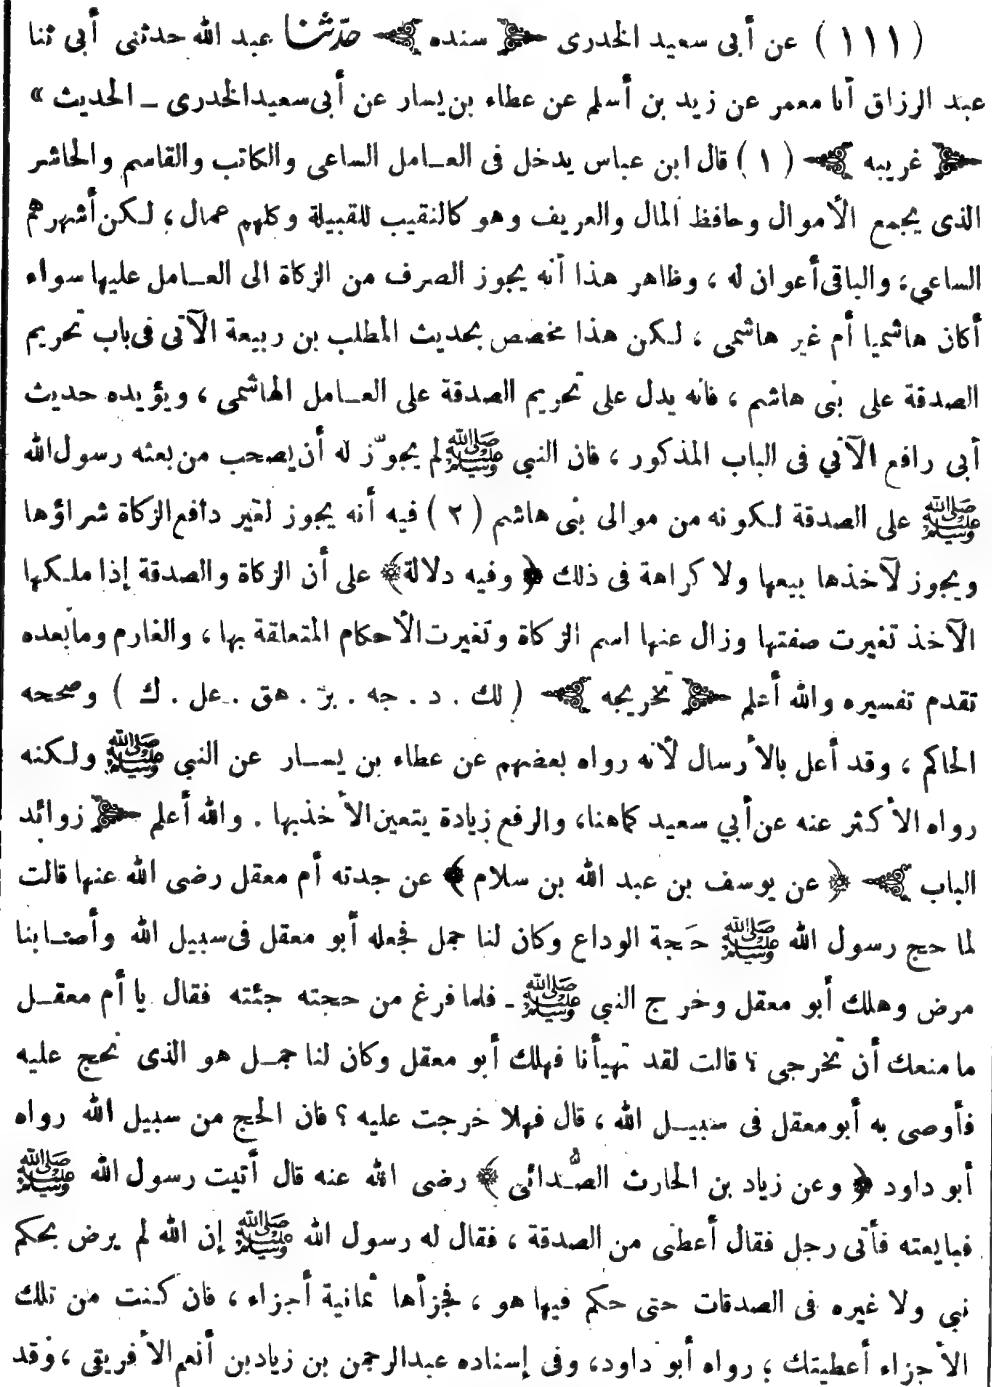 (١١١) عن أبى سعيد الخدرى ﴿ سنده ﴾ حدّثنا عبد الله حدثنى أبى ثنا
عبد الرزاق أنا معمر عن زيد بن أسلم عن عطاء بن يسار عن أبى سعيد الخدرى ــ الحديث »
﴿ غريبه ﴾ (١) قال ابن عباس يدخل فى العـامل الساعى والكاتب والقاسم والحاشر
الذى يجمع الأموال وحافظ المال والعريف وهو كالنقيب للقبيلة وكلهم عمال ؛ لـكن أشهرهم
الساعي، والباقى أعوان له ، وظاهر هذا أنه يجوز الصرف من الزكاة الى العـامل عليها سواء
أكان هاشميا أم غير هاشمى ، لـكن هذا مخصص بحديث المطلب بن ربيعة الآتى فى باب تحريم
الصدقة على بنى هاشم ، فانه يدل على تحريم الصدقة على العـامل الهاشمى ، ويؤيده حديث
أبى رافع الآتي فى الباب المذكور ، فان النبي ﷺ لم يجوّز له أن يصحب من بعثه رسول الله
ﷺ على الصدقة لـكونه من موالى بنى هاشم (٢) فيه أنه يجوز لغير دافع الزكاة شراؤها
ويجوز لآخذها بيعها ولا كراهة فى ذلك ﴿ وفيه دلالة ﴾ على أن الزكاة والصدقة إذا ملـكها
الآخذ تغيرت صفتها وزال عنها اسم الزكاة وتغيرت الأحكام المتعلقة بها ، والغارم وما بعده
تقدم تفسيره والله أعلم ﴿ تخريجه ﴾ ( لك . د . جه . بز . هق . عل . ك ) وصححه
الحاكم ، وقد أعل بالأرسال لأنه رواه بعضهم عن عطاء بن يسـار عن النبي ﷺ ولـكنه
رواه الأكثر عنه عن أبي سعيد كما هنا، والرفع زيادة يتعين الأخذ بها . والله أعلم ﴿ زوائد
الباب ﴾ ﴿ عن يوسف بن عبد الله بن سلام ﴾ عن جدته أم معقل رضى الله عنها قالت
لما حج رسول الله ﷺ حَجة الوداع وكان لنا جمل فجعله أبو معقل فى سبيل الله وأصـابنا
مرض وهلك أبو معقل وخرج النبي ﷺ ـ فلما فرغ من حجته جئته فقال يا أم معقـل
ما منعك أن تخرجى ؟ قالت لقد تهيأنا فهلك أبو معقل وكان لنا جمـل هو الذى نحج عليه
فأوصى به أبو معقل فى سبيـل الله ، قال فهلا خرجت عليه ؟ فان الحج من سبيل الله رواه
أبو داود ﴿ وعن زياد بن الحارث الصُّدائى ﴾ رضى الله عنه قال أتيت رسول الله ﷺ
فبايعته فأتى رجل فقال أعطنى من الصدقة ، فقال له رسول الله ﷺ إن الله لم يرض بحكم
نبي ولا غيره فى الصدقات حتى حكم فيها هو ، فجزأها ثمانية أجزاء ، فان كنت من تلك
الأجزاء أعطيتك ؛ رواه أبو داود، وفى إسناده عبد الرحمن بن زياد بن أنعم الأفريقى ، وقد